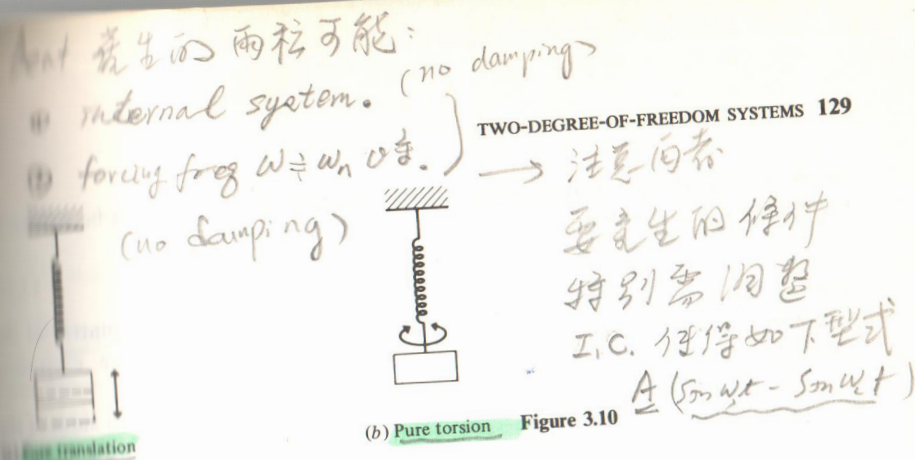 發生的兩種可能:
① internal system. (no damping)
② forcing freq ω≒ωn 時.
(no damping)
TWO-DEGREE-OF-FREEDOM SYSTEMS 129
→ 注意兩者
要產生的條件
特別需調整
I.C. 使得如下型式
A (Sin ωt - Sin ω t)
Pure translation
(b) Pure torsion Figure 3.10